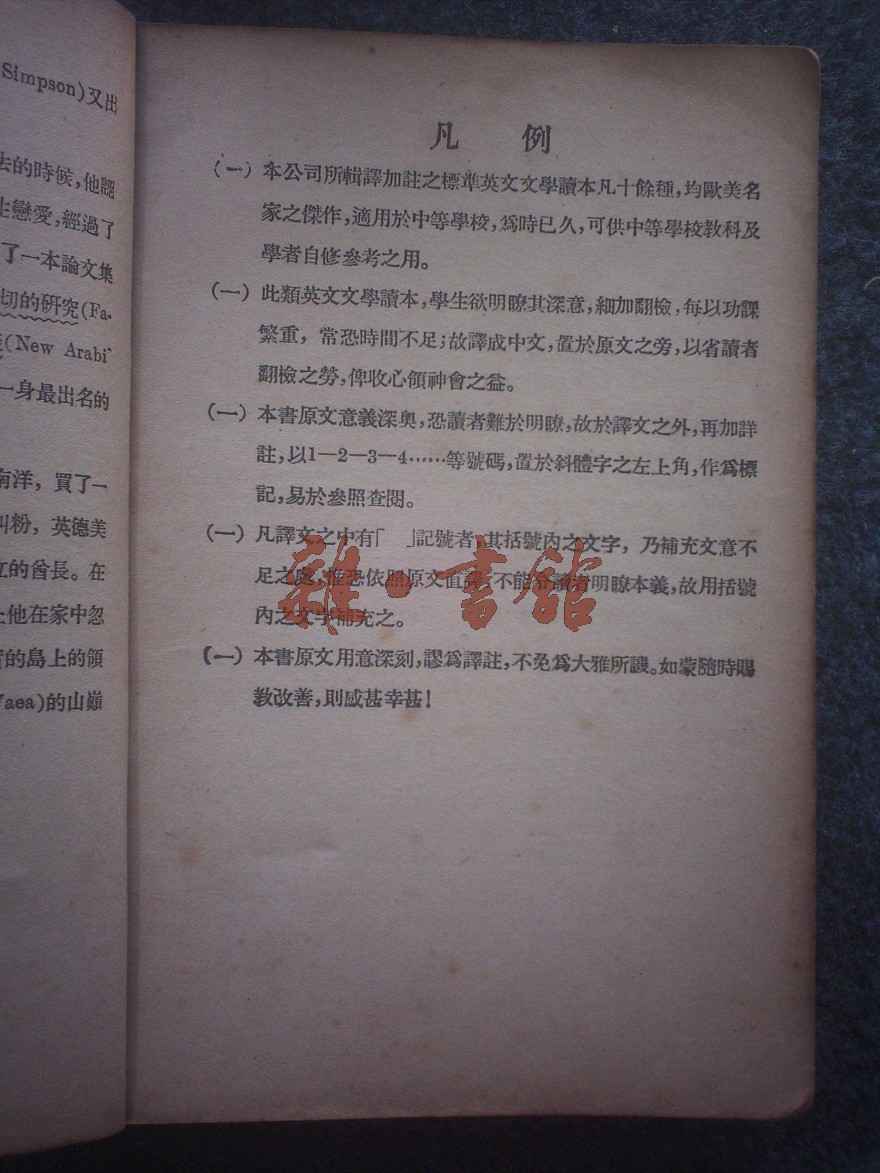 Simpson)又出
去的時候,他認
生戀愛,經過了
了一本論文集
切的研究(Fa-
(New Arabi
一身最出名的
南洋，買了一
糾粉，英德美
立的酋長。在
他在家中忽
的島上的領
aea)的山巔
凡例
(一) 本公司所輯譯加註之標準英文文學讀本凡十餘種，均歐美名
家之傑作，適用於中等學校，爲時已久，可供中等學校教科及
學者自修參考之用。
(一) 此類英文文學讀本，學生欲明瞭其深意，細加翻檢，每以功課
繁重，常恐時間不足；故譯成中文，置於原文之旁，以省讀者
翻檢之勞，俾收心領神會之益。
(一) 本書原文意義深奧，恐讀者難於明瞭，故於譯文之外，再加詳
註，以1—2—3—4……等號碼，置於斜體字之左上角，作爲標
記，易於參照查閱。
(一) 凡譯文之中有「　」記號者，其括號內之文字，乃補充文意不
足之處，惟恐依照原文直譯，不能令讀者明瞭本義，故用括號
內之文字補充之。
(一) 本書原文用意深刻，謬爲譯註，不免爲大雅所譏。如蒙隨時賜
教改善，則感甚幸甚！
雜·書館